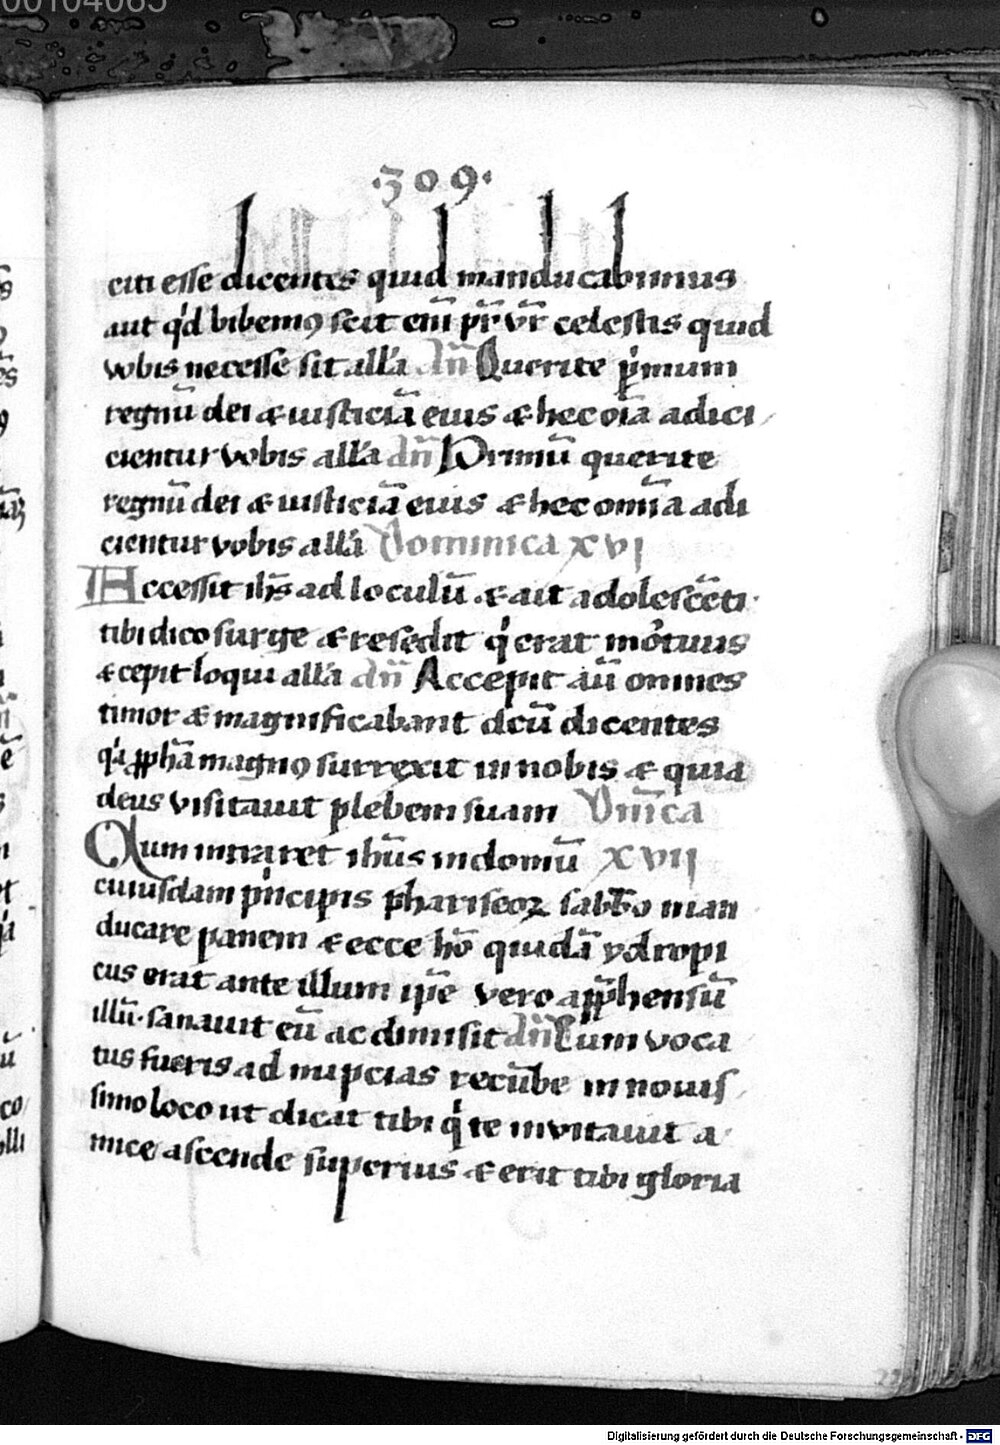 00104065
·309·
citi esse dicentes quid manducabimus
aut qͥd bibemꝰ scit em̄ pr̄ vr̄ celestis quid
vobis necesse sit all'a dn̄ Querite pͥmum
regnū dei & iusticiā eius & hec oīa adici
cientur vobis all'a dn̄ Primū querite
regnū dei & iusticiā eius & hec omīa adi
cientur vobis all'a Dominica xvj
Accessit ih̄s ad loculū & ait adolescēti
tibi dico surge & resedit qͥ erat mortuus
& cepit loqui all'a dn̄ Accepit aū omnes
timor & magnificabant deū dicentes
qͥa ꝓph̄a magnꝰ surrexit in nobis & quia
deus visitauit plebem suam Dn̄ica
Qum intraret ih̄us in domū xvij
cuiusdam pͥncipis phariseoꝝ sabb̄o man
ducare panem & ecce hō quidā ydropi
cus erat ante illum ip̄e vero app̄hensū
illū sanauit eū ac dimisit dn̄ Cum voca
tus fueris ad nupcias recūbe in nouis
simo loco ut dicat tibi qͥ te inuitauit a
mice ascende superius & erit tibi gloria
Digitalisierung gefördert durch die Deutsche Forschungsgemeinschaft - DFG